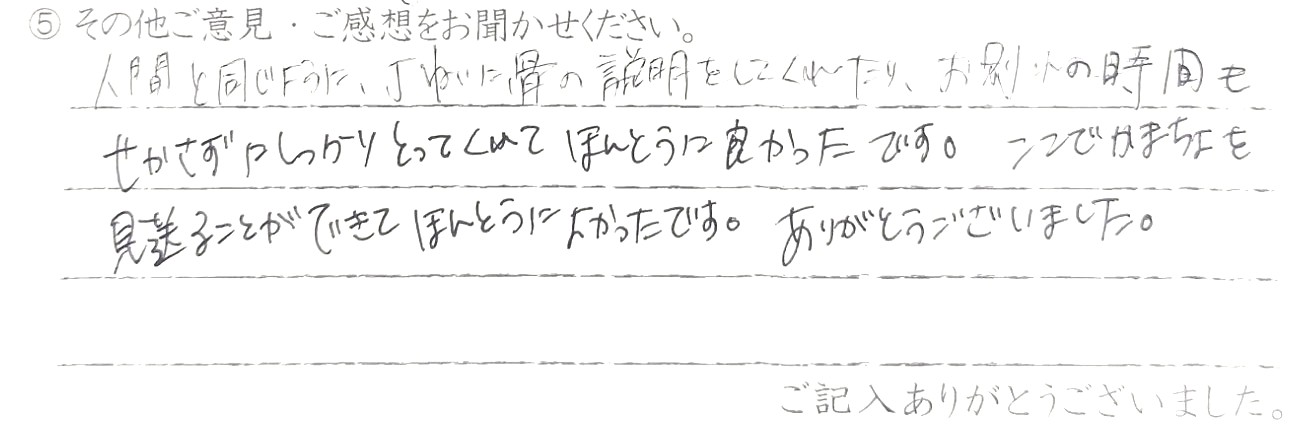 ⑤ その他ご意見・ご感想をお聞かせください。
人間と同じように、丁ねいに骨の説明をしてくれたり、お別れの時間も
せかさずにしっかりとってくれてほんとうに良かったです。ここでかまちょを
見送ることができてほんとうによかったです。ありがとうございました。
ご記入ありがとうございました。